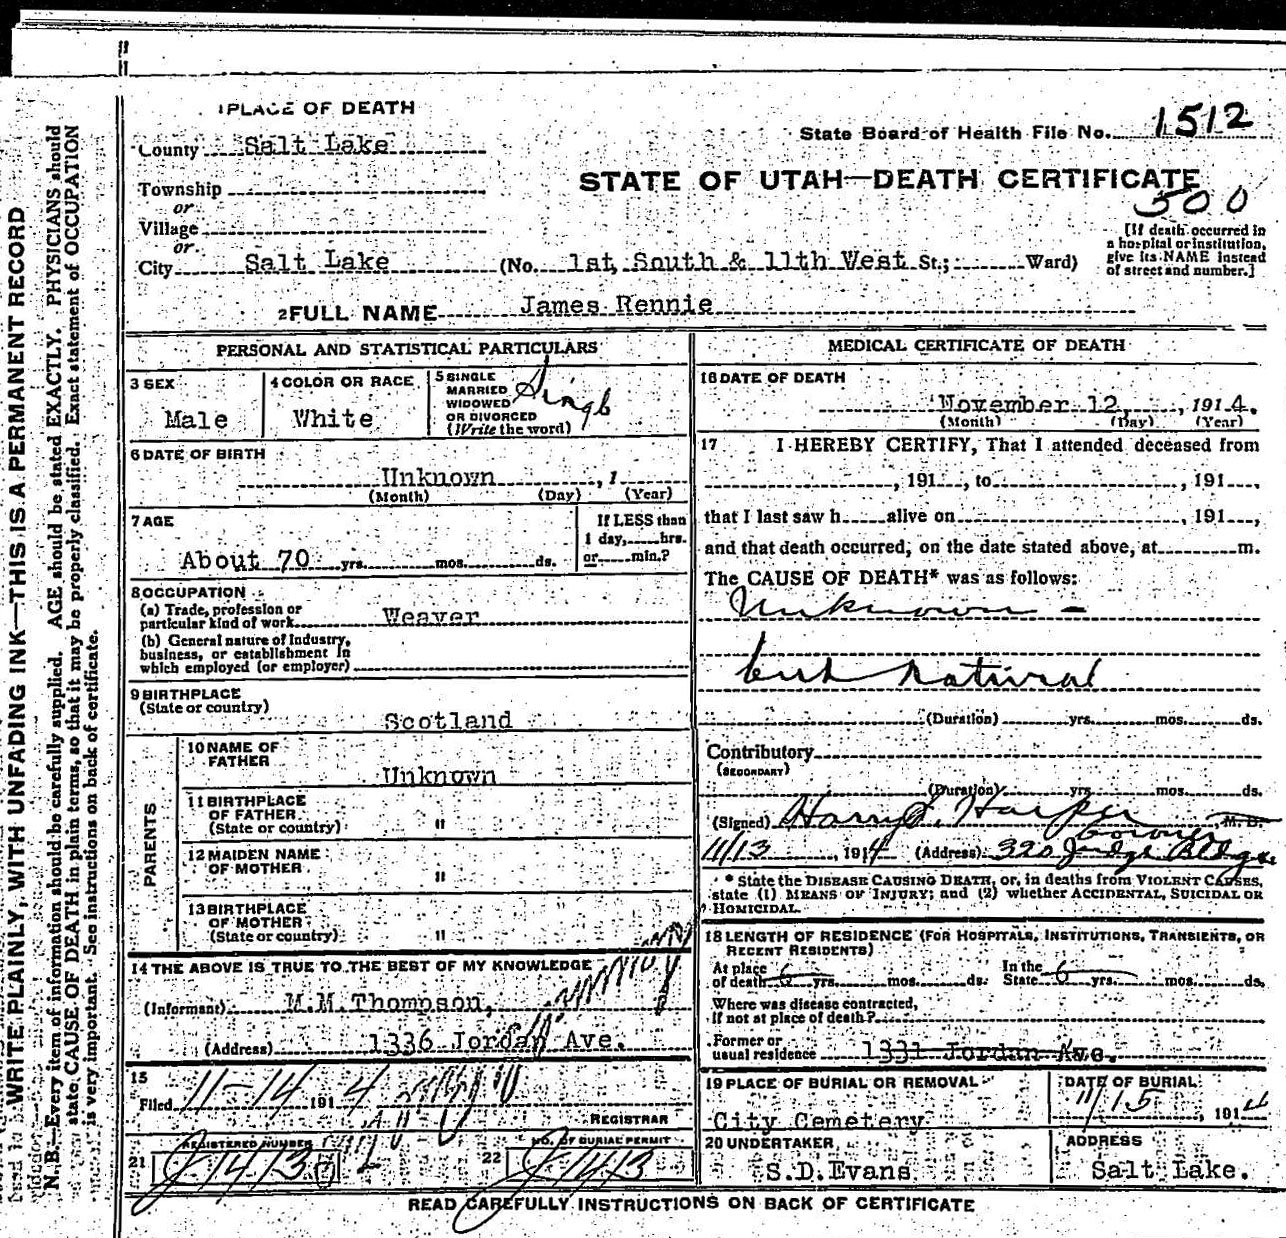 1 PLACE OF DEATH
County Salt Lake
State Board of Health File No. 1512
Township
or
Village
or
City Salt Lake (No. 1st, South & 11th West St.; Ward)
STATE OF UTAH—DEATH CERTIFICATE
500
[If death occurred in
a hospital or institution,
give its NAME instead
of street and number.]
2 FULL NAME James Rennie
PERSONAL AND STATISTICAL PARTICULARS
3 SEX
Male
4 COLOR OR RACE
White
5 SINGLE
MARRIED
WIDOWED
OR DIVORCED
(Write the word)
Single
6 DATE OF BIRTH
Unknown , 1
(Month) (Day) (Year)
7 AGE
About 70 yrs. mos. ds.
If LESS than
1 day, hrs.
or min.?
8 OCCUPATION
(a) Trade, profession or
particular kind of work Weaver
(b) General nature of Industry,
business, or establishment in
which employed (or employer)
9 BIRTHPLACE
(State or country)
Scotland
PARENTS
10 NAME OF
FATHER
Unknown
11 BIRTHPLACE
OF FATHER
(State or country) "
12 MAIDEN NAME
OF MOTHER "
13 BIRTHPLACE
OF MOTHER
(State or country) "
14 THE ABOVE IS TRUE TO THE BEST OF MY KNOWLEDGE
(Informant) M.M.Thompson,
(Address) 1336 Jordan Ave.
15
Filed 11-14 191 4
REGISTRAR
REGISTERED NUMBER
21 J1413
NO. OF BURIAL PERMIT
22 J1413
MEDICAL CERTIFICATE OF DEATH
16 DATE OF DEATH
November 12, , 1914.
(Month) (Day) (Year)
17 I HEREBY CERTIFY, That I attended deceased from
, 191 , to , 191 ,
that I last saw h alive on , 191 ,
and that death occurred, on the date stated above, at m.
The CAUSE OF DEATH* was as follows:
Unknown -
but Natural
(Duration) yrs. mos. ds.
Contributory
(SECONDARY)
(Duration) yrs. mos. ds.
(Signed) Harry S. Harper M. D.
Coroner
11/13 , 1914 (Address) 320 Judge Bldg.
* State the DISEASE CAUSING DEATH, or, in deaths from VIOLENT CAUSES,
state (1) MEANS OF INJURY; and (2) whether ACCIDENTAL, SUICIDAL OR
HOMICIDAL.
18 LENGTH OF RESIDENCE (FOR HOSPITALS, INSTITUTIONS, TRANSIENTS, OR
RECENT RESIDENTS)
At place
of death 6 yrs. mos. ds.
In the
State 6 yrs. mos. ds.
Where was disease contracted,
If not at place of death?
Former or
usual residence 1331 Jordan Ave.
19 PLACE OF BURIAL OR REMOVAL
City Cemetery
DATE OF BURIAL
11/15 , 1914
20 UNDERTAKER
S.D.Evans
ADDRESS
Salt Lake.
READ CAREFULLY INSTRUCTIONS ON BACK OF CERTIFICATE
WRITE PLAINLY, WITH UNFADING INK—THIS IS A PERMANENT RECORD
N. B.—Every item of information should be carefully supplied. AGE should be stated EXACTLY. PHYSICIANS should
state CAUSE OF DEATH in plain terms, so that it may be properly classified. Exact statement of OCCUPATION
is very important. See instructions on back of certificate.